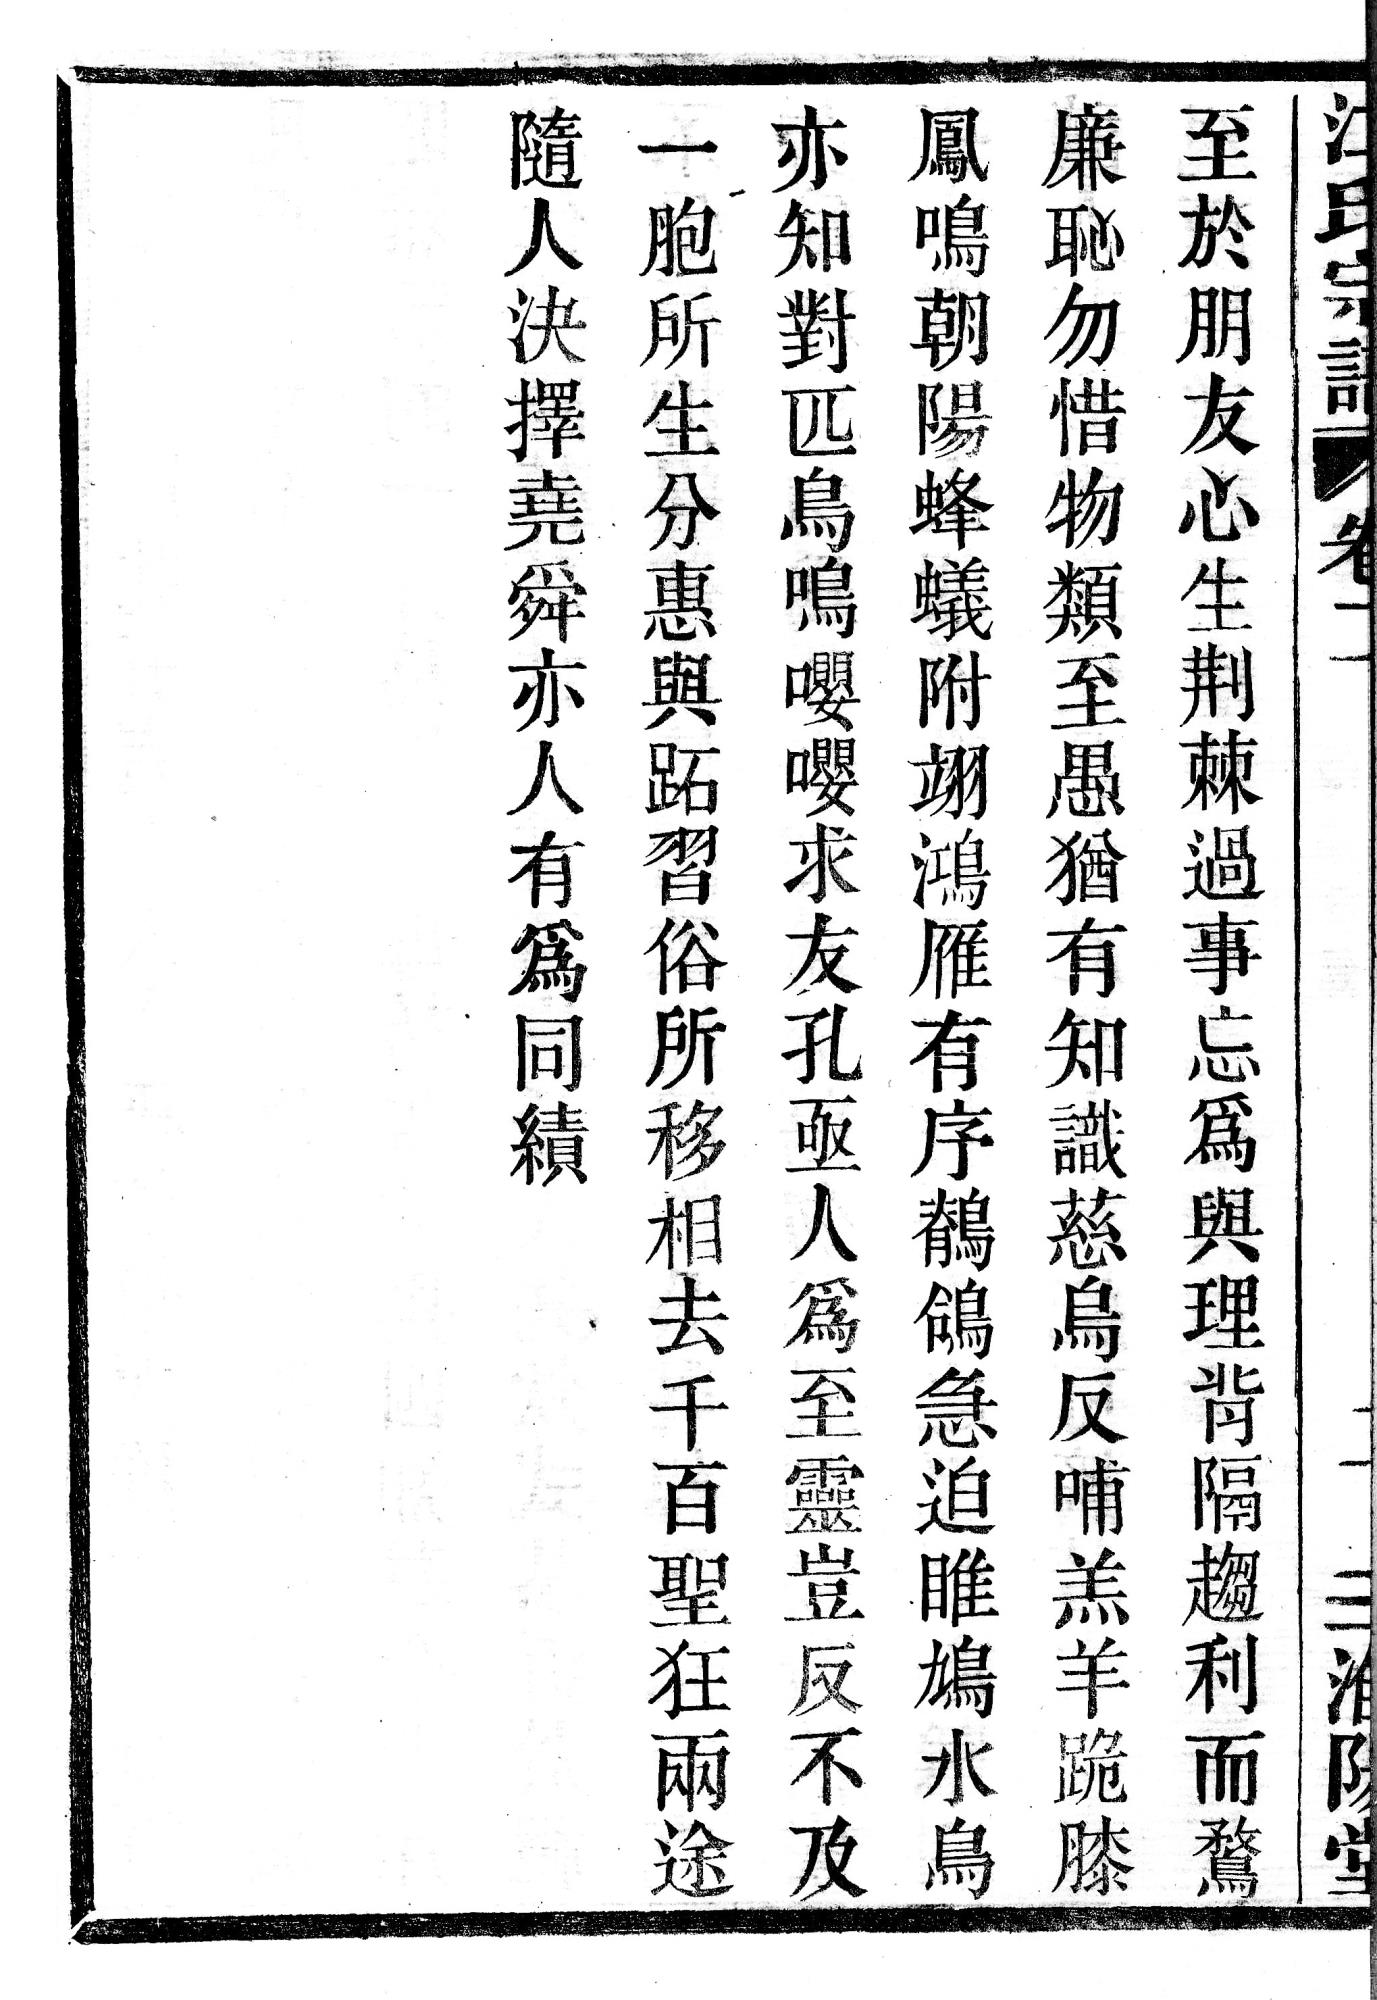 江氏宗譜 卷二 二 淮陽堂
至於朋友心生荆棘過事忘爲與理背隔趨利而鶩
廉恥勿惜物類至愚猶有知識慈烏反哺羔羊跪膝
鳳鳴朝陽蜂蟻附翊鴻雁有序鶺鴒急迫睢鳩水鳥
亦知對匹鳥鳴嚶嚶求友孔亟人爲至靈豈反不及
一胞所生分惠與跖習俗所移相去千百聖狂兩途
隨人決擇堯舜亦人有爲同績